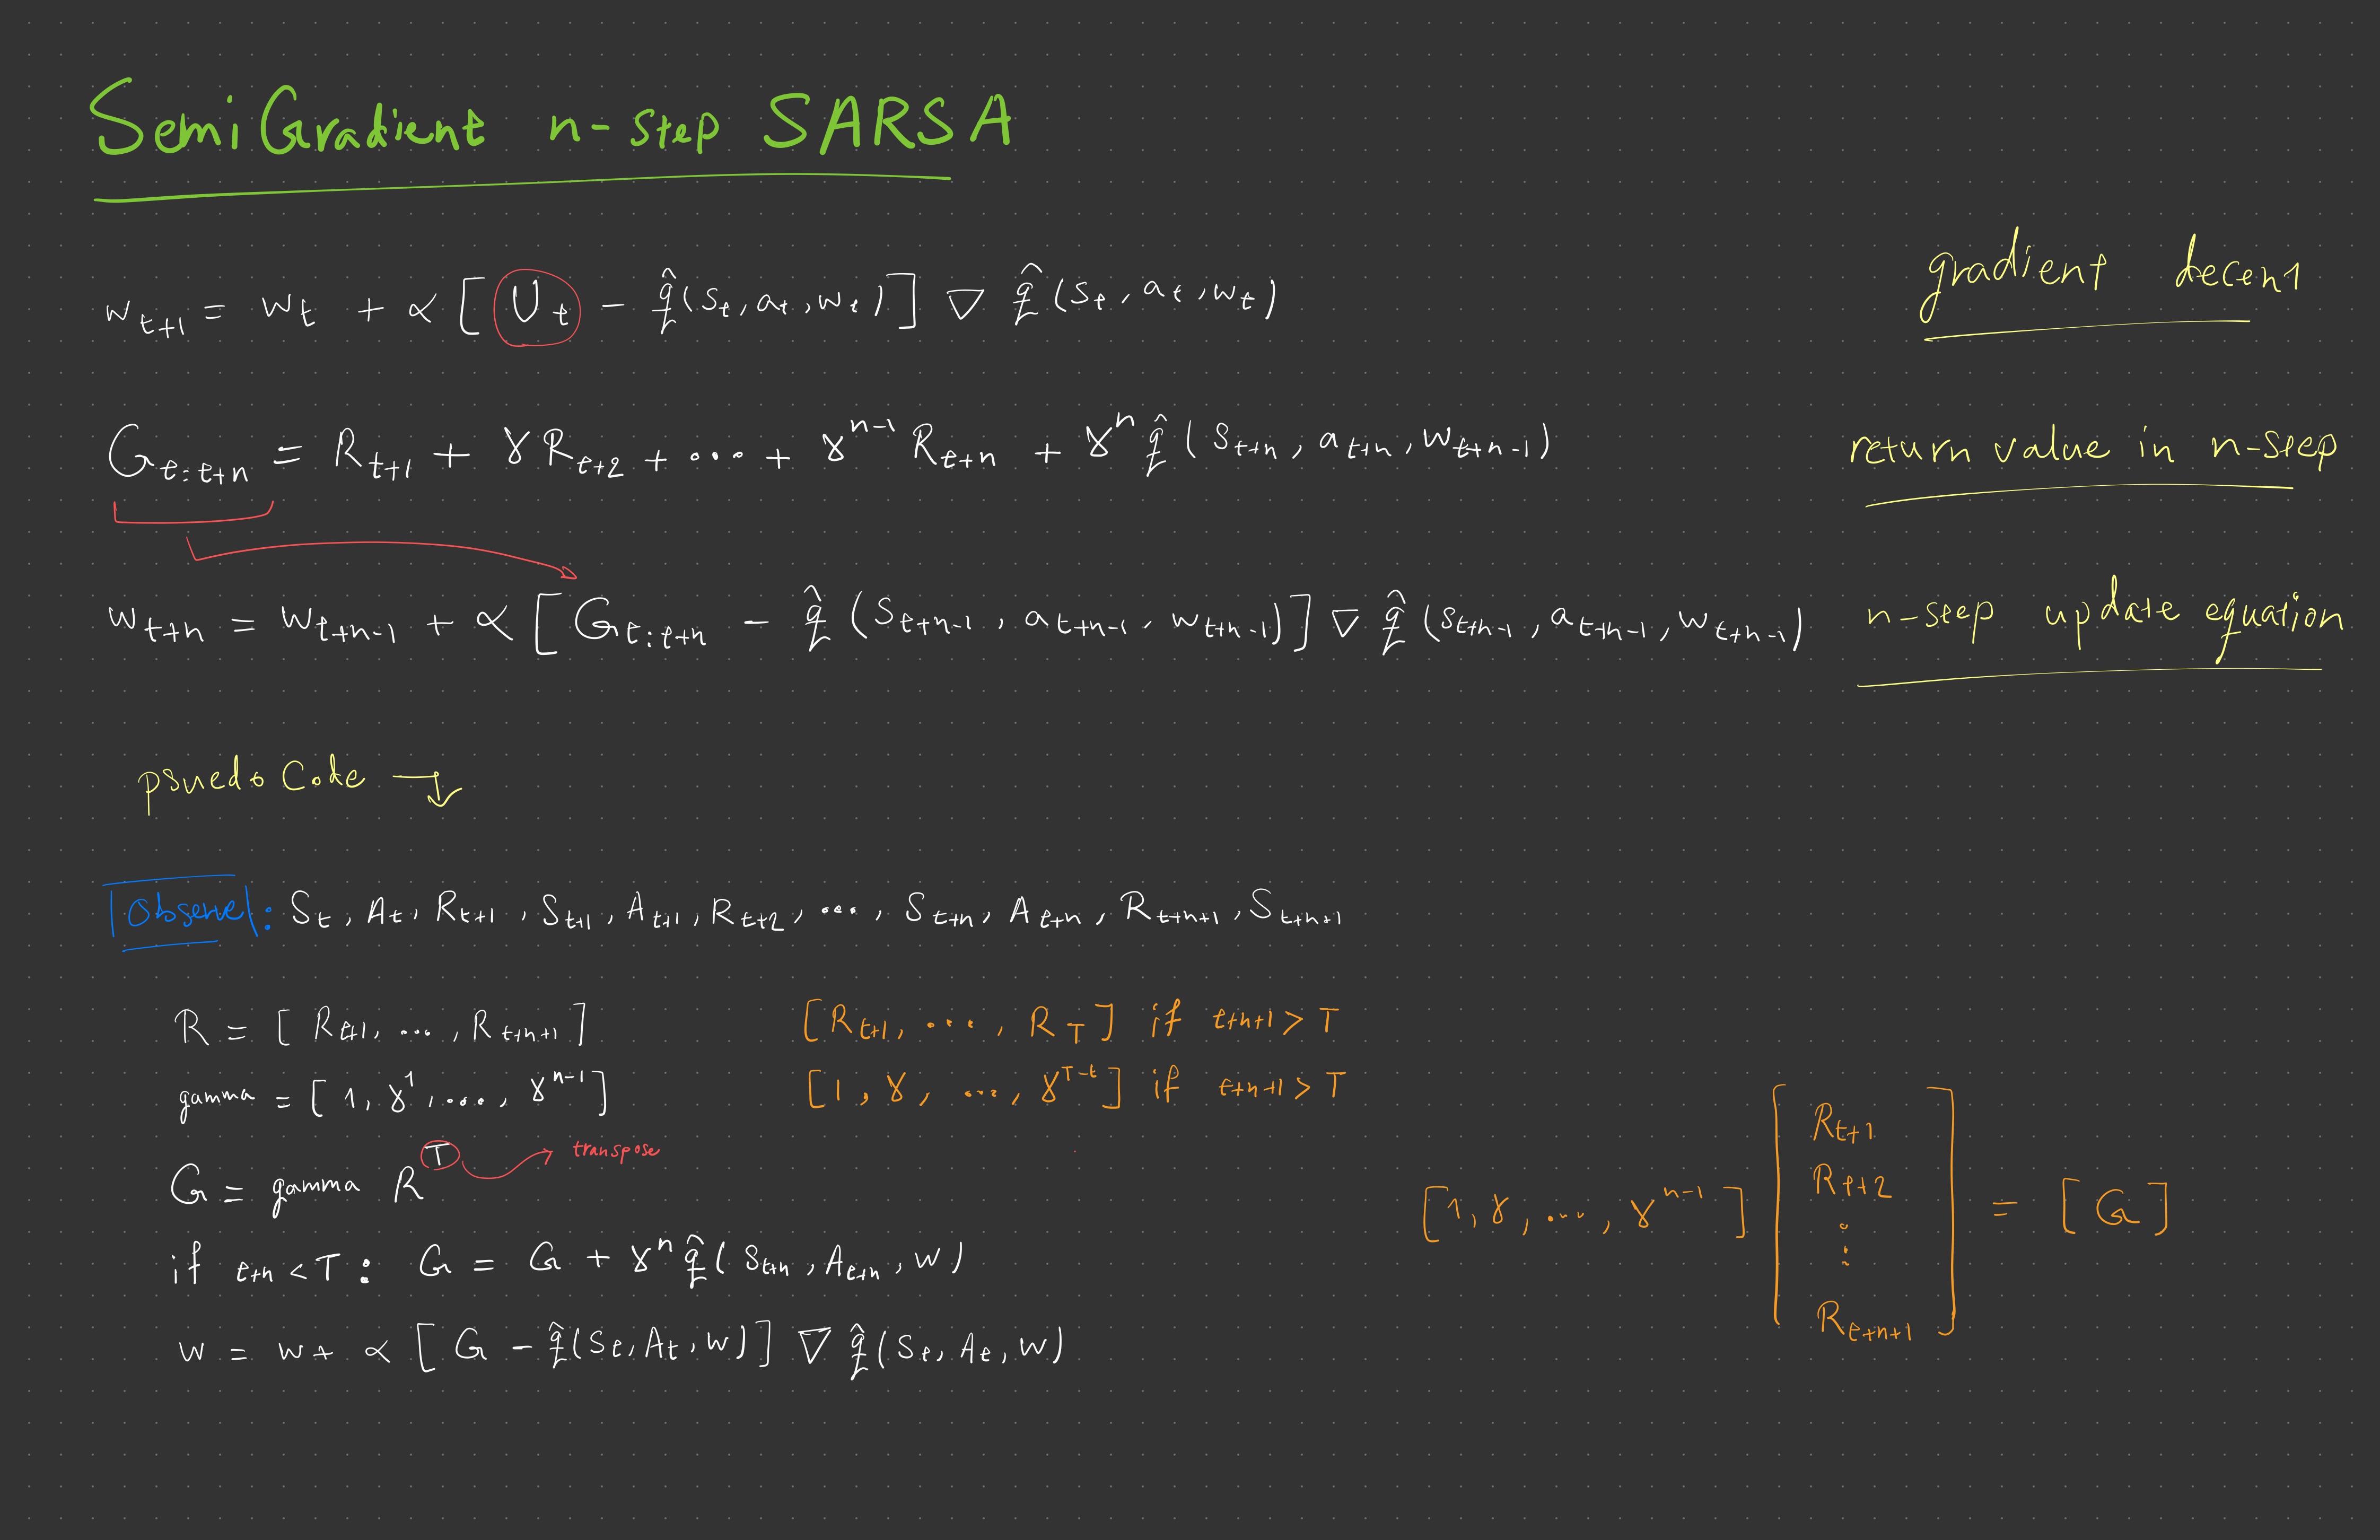 Semi Gradient n-step SARSA
w_{t+1} = w_t + α [ U_t - q̂(s_t, a_t, w_t) ] ∇ q̂(s_t, a_t, w_t)
gradient decent
G_{t:t+n} = R_{t+1} + γ R_{t+2} + ... + γ^{n-1} R_{t+n} + γ^n q̂(s_{t+n}, a_{t+n}, w_{t+n-1})
return value in n-step
w_{t+n} = w_{t+n-1} + α [ G_{t:t+n} - q̂(s_{t+n-1}, a_{t+n-1}, w_{t+n-1}) ] ∇ q̂(s_{t+n-1}, a_{t+n-1}, w_{t+n-1})
n-step update equation
psuedo Code →
Observe: S_t, A_t, R_{t+1}, S_{t+1}, A_{t+1}, R_{t+2}, ..., S_{t+n}, A_{t+n}, R_{t+n+1}, S_{t+n+1}
R = [ R_{t+1}, ..., R_{t+n+1} ]
[ R_{t+1}, ..., R_T ] if t+n+1 > T
gamma = [ 1, γ^1, ..., γ^{n-1} ]
[ 1, γ, ..., γ^{T-t} ] if t+n+1 > T
G = gamma R^T → transpose
if t+n < T : G = G + γ^n q̂(S_{t+n}, A_{t+n}, w)
w = w + α [ G - q̂(S_t, A_t, w) ] ∇ q̂(S_t, A_t, w)
R_{t+1}
R_{t+2}
[ 1, γ, ..., γ^{n-1} ] = [ G ]
⋮
R_{t+n+1}